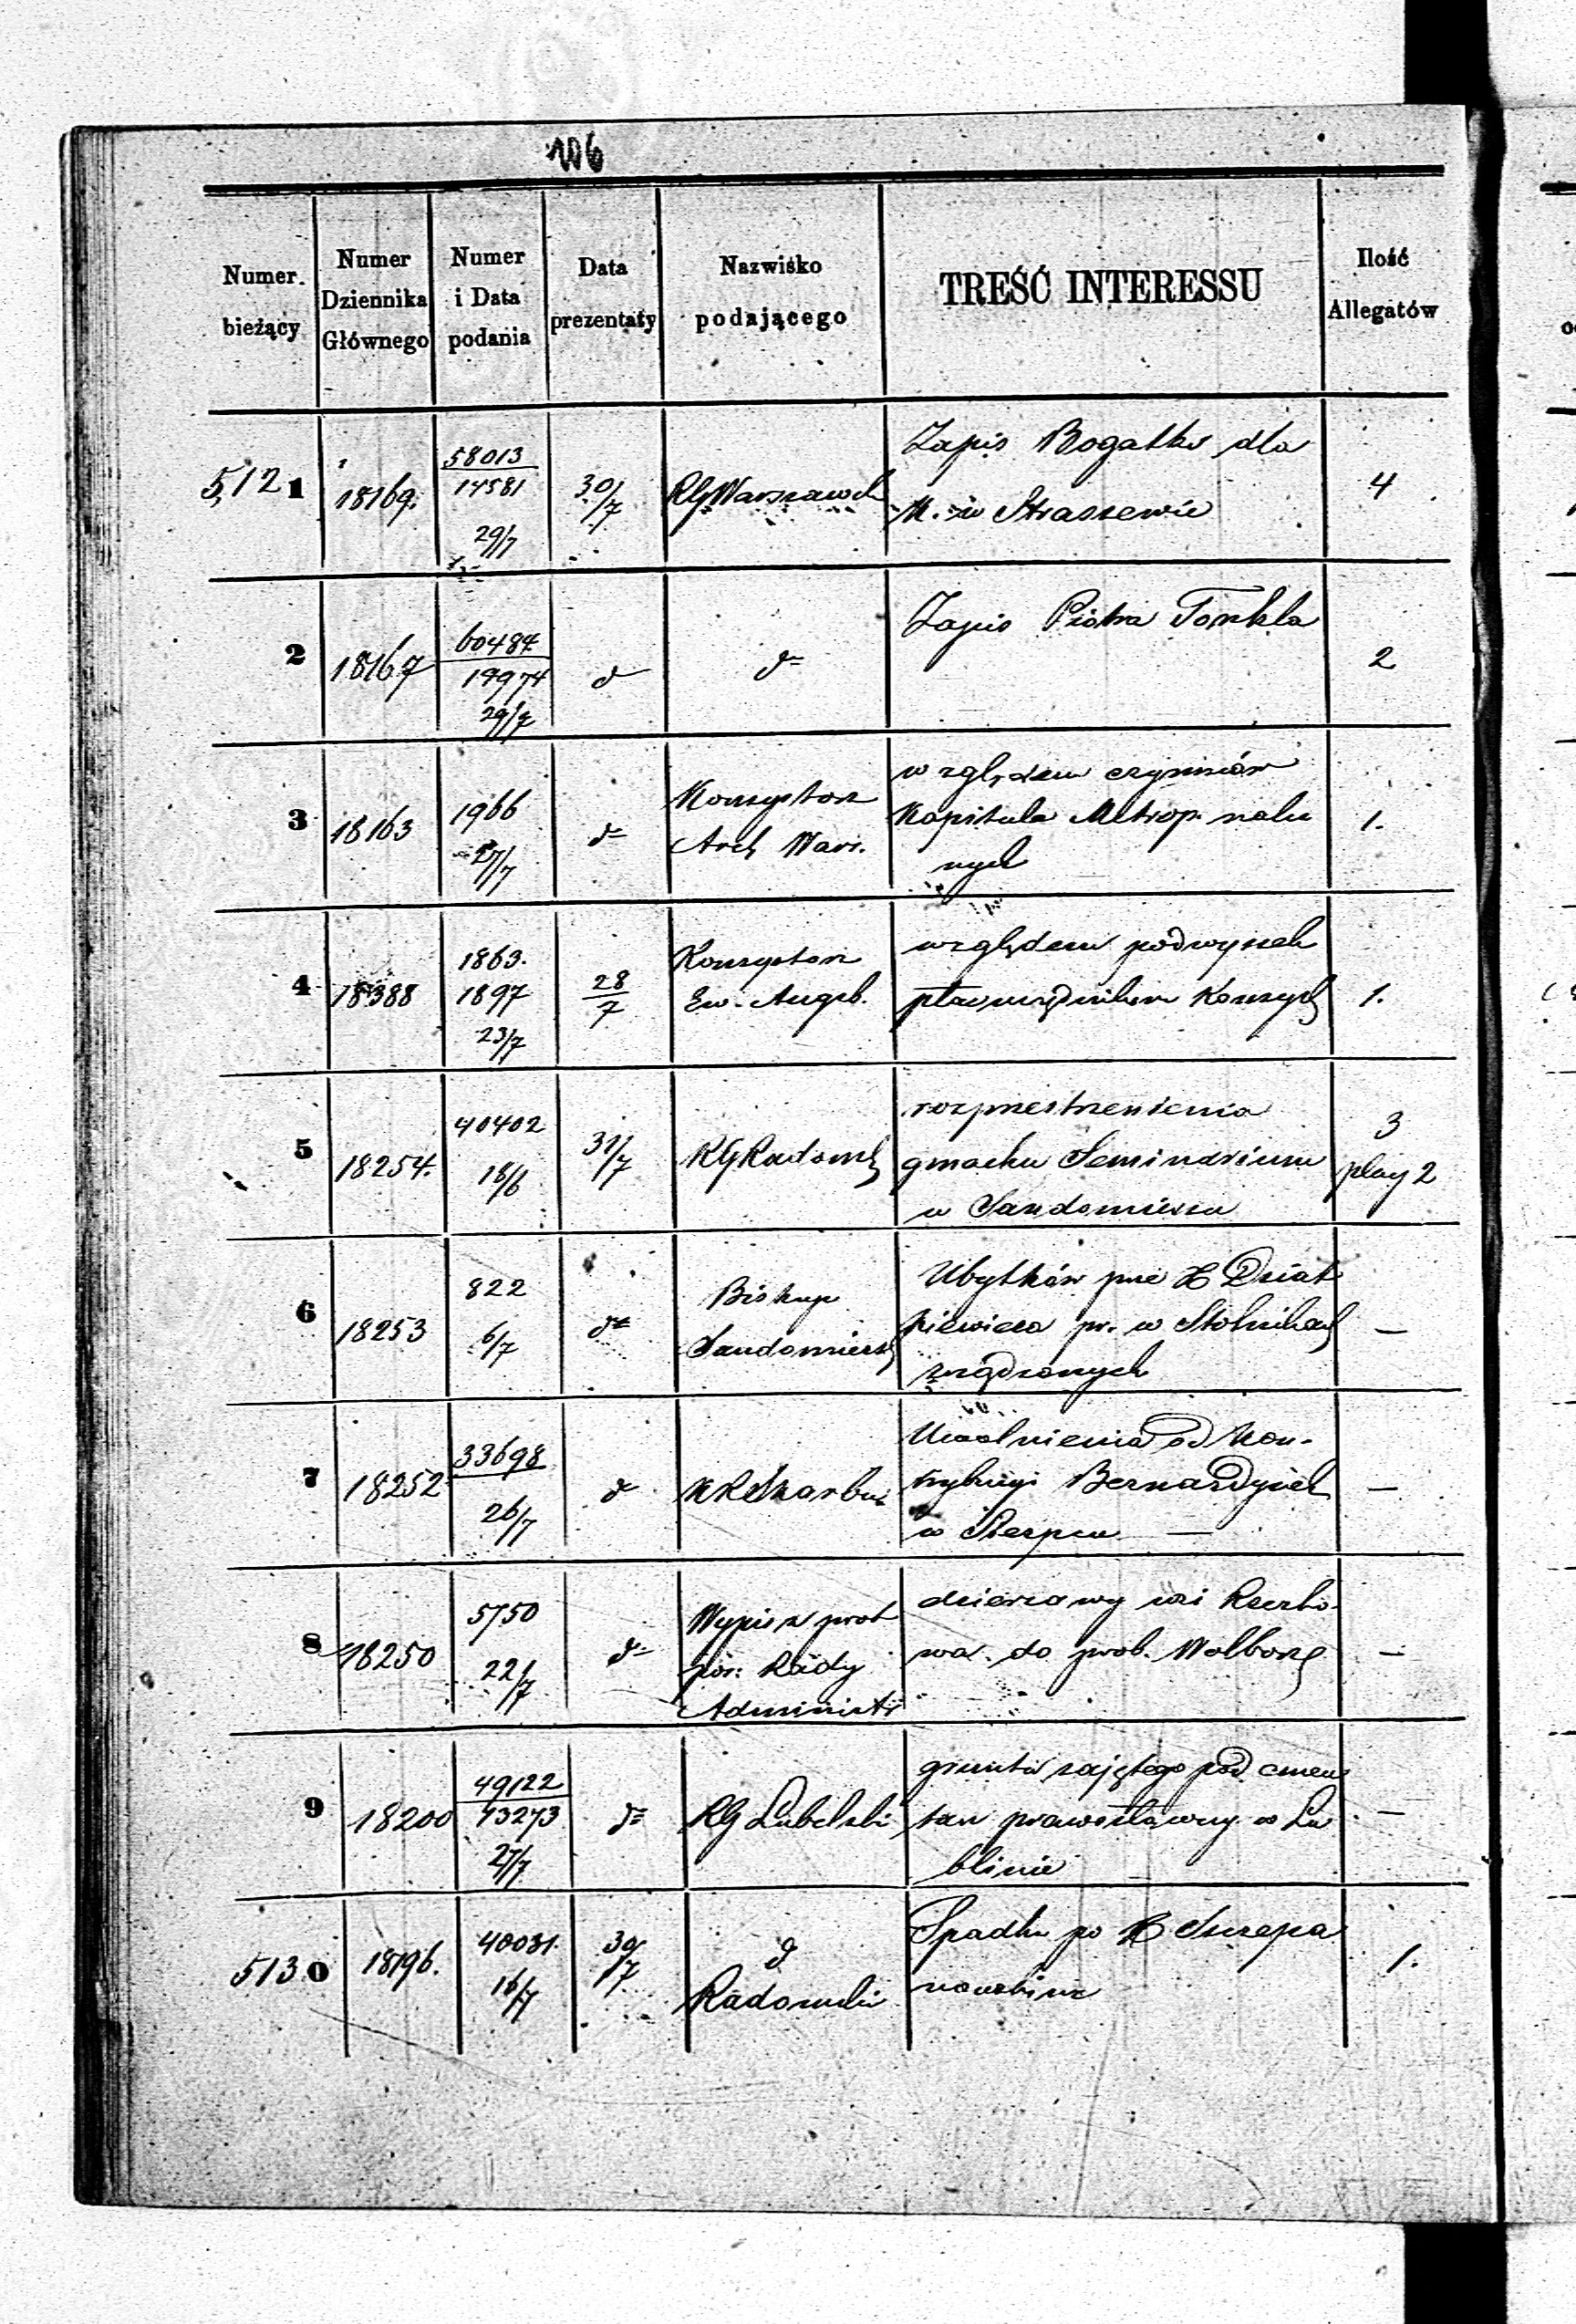 106
Numer bieżący
Numer Dziennika Głównego
Numer i Data podania
Data prezentaty
Nazwisko podającego
TREŚĆ INTERESSU
Ilość Allegatów
5,121
18169.
58013
14581
29/7
30/7
RG Warszawsk
Zapis Bogatko dla
M. w Straszewie
4
2
18167
60484
19974
29/7
d
d
Zapis Piotra
2
3
18163
1966
27/7
d
Konsystorz
Arch Wars.
względem czynszów
Kapitula Metrop. nalu
nych
1.
4
18388
1863.
1897
23/7
28
7
Konsystorz
Ew. Augsb.
względem podwyzsch
Konsys
1.
5
18254.
40402
18/6
31/7
RG Radoms
rozprzestrzenienia
gmachu Seminarium
w Sandomierzu
3
play 2
6
18253
822
6/7
d
Biskup
Sandomiersk
Ubytków prze X
pr. w
zrządzonych
—
7
18252
33698
26/7
d
KR Skarbu
Uwolnienia od Kon-
trybucyi Bernardynek
w Sierpcu —
—
8
18250
5750
22/7
d
Wypis z prot
pos: Rady
Administr
dzierzawy wsi
wa. do prob. Wolborz
—
9
18200
49122
13273
27/7
d
RG Lubelski
gruntu zajętego pod cmen
tarz prawosławny w Lu
blinie
—
5130
18196.
40031.
16/7
30/7
d
Radomski
Spadku po X Szczepa
nowskim
1.